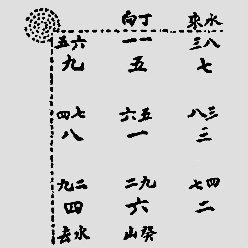 向丁 來水
五六 一一 三八
九 五 七
四七 六五 八三
八 一 三
九二 二九 七四
四 六 二
去水 山癸